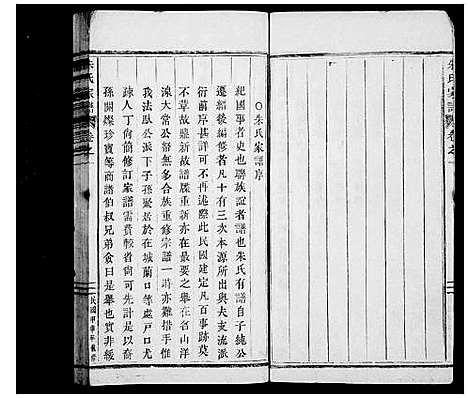 朱氏家譜 卷之一
〇朱氏家譜序
紀國事者史也聯族誼者譜也朱氏有譜自子純公
遷紹後編修者凡十有三次本源所出與夫支流派
衍前序甚詳可不再述際此民國建定凡百事跡莫
不革故鼎新故譜牒重新亦在最要之舉在名山洋
湶大常公督無多合族重修宗譜一時亦難措手惟
我法臥公派下子孫聚居於在城蘭口等處戶口尤
疎人丁尚簡修訂家譜需費較省尚可先計是以裔
孫關燦珍寶等商諸伯叔兄弟僉曰是舉也實非緩
朱氏家譜 卷之一